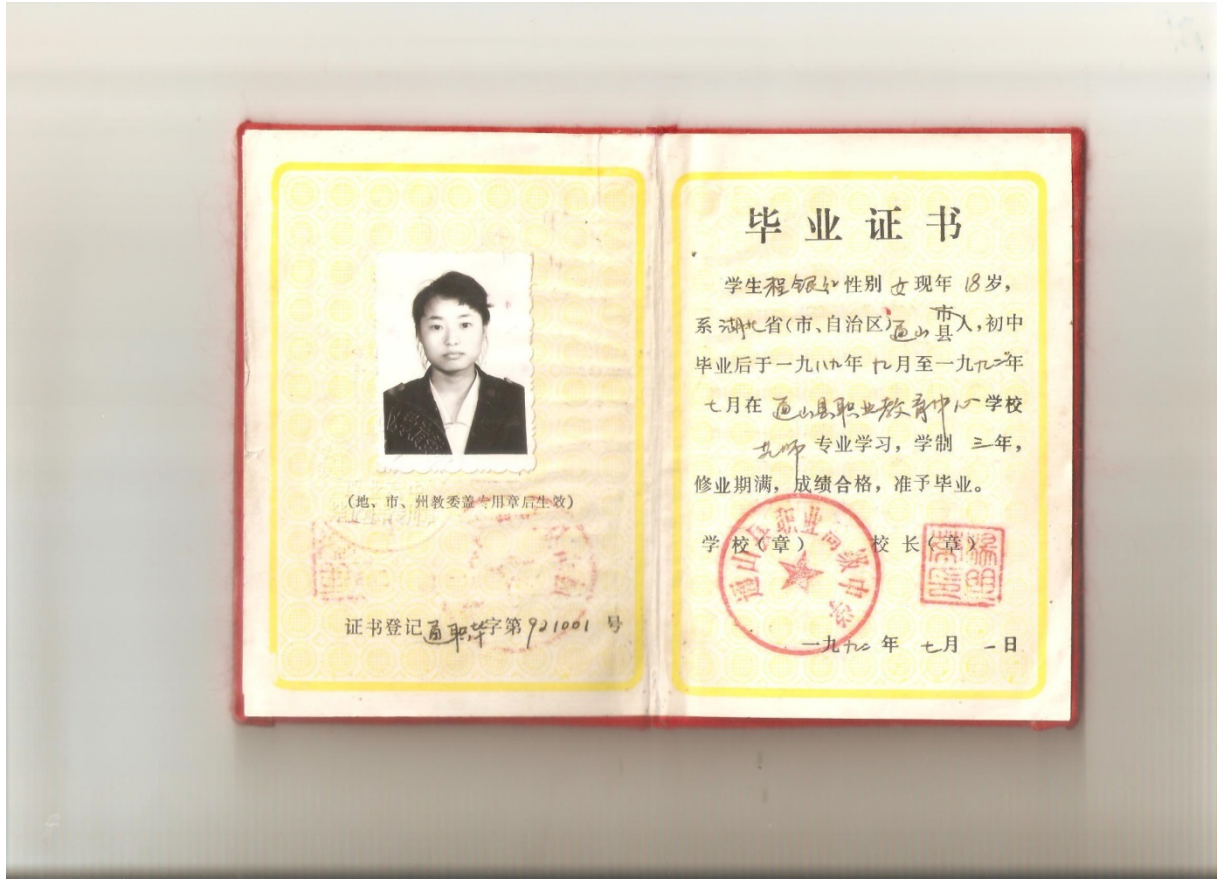 (地、市、州教委盖专用章后生效)
证书登记通职毕字第921001号
毕业证书
学生程银红性别女现年18岁,
系湖北省(市、自治区)通山市县人,初中
毕业后于一九八九年九月至一九九二年
七月在通山县职业教育中心学校
专业学习,学制三年,
修业期满,成绩合格,准予毕业。
学校(章) 校长(章)
通山县职业高级中学
一九九二年七月一日